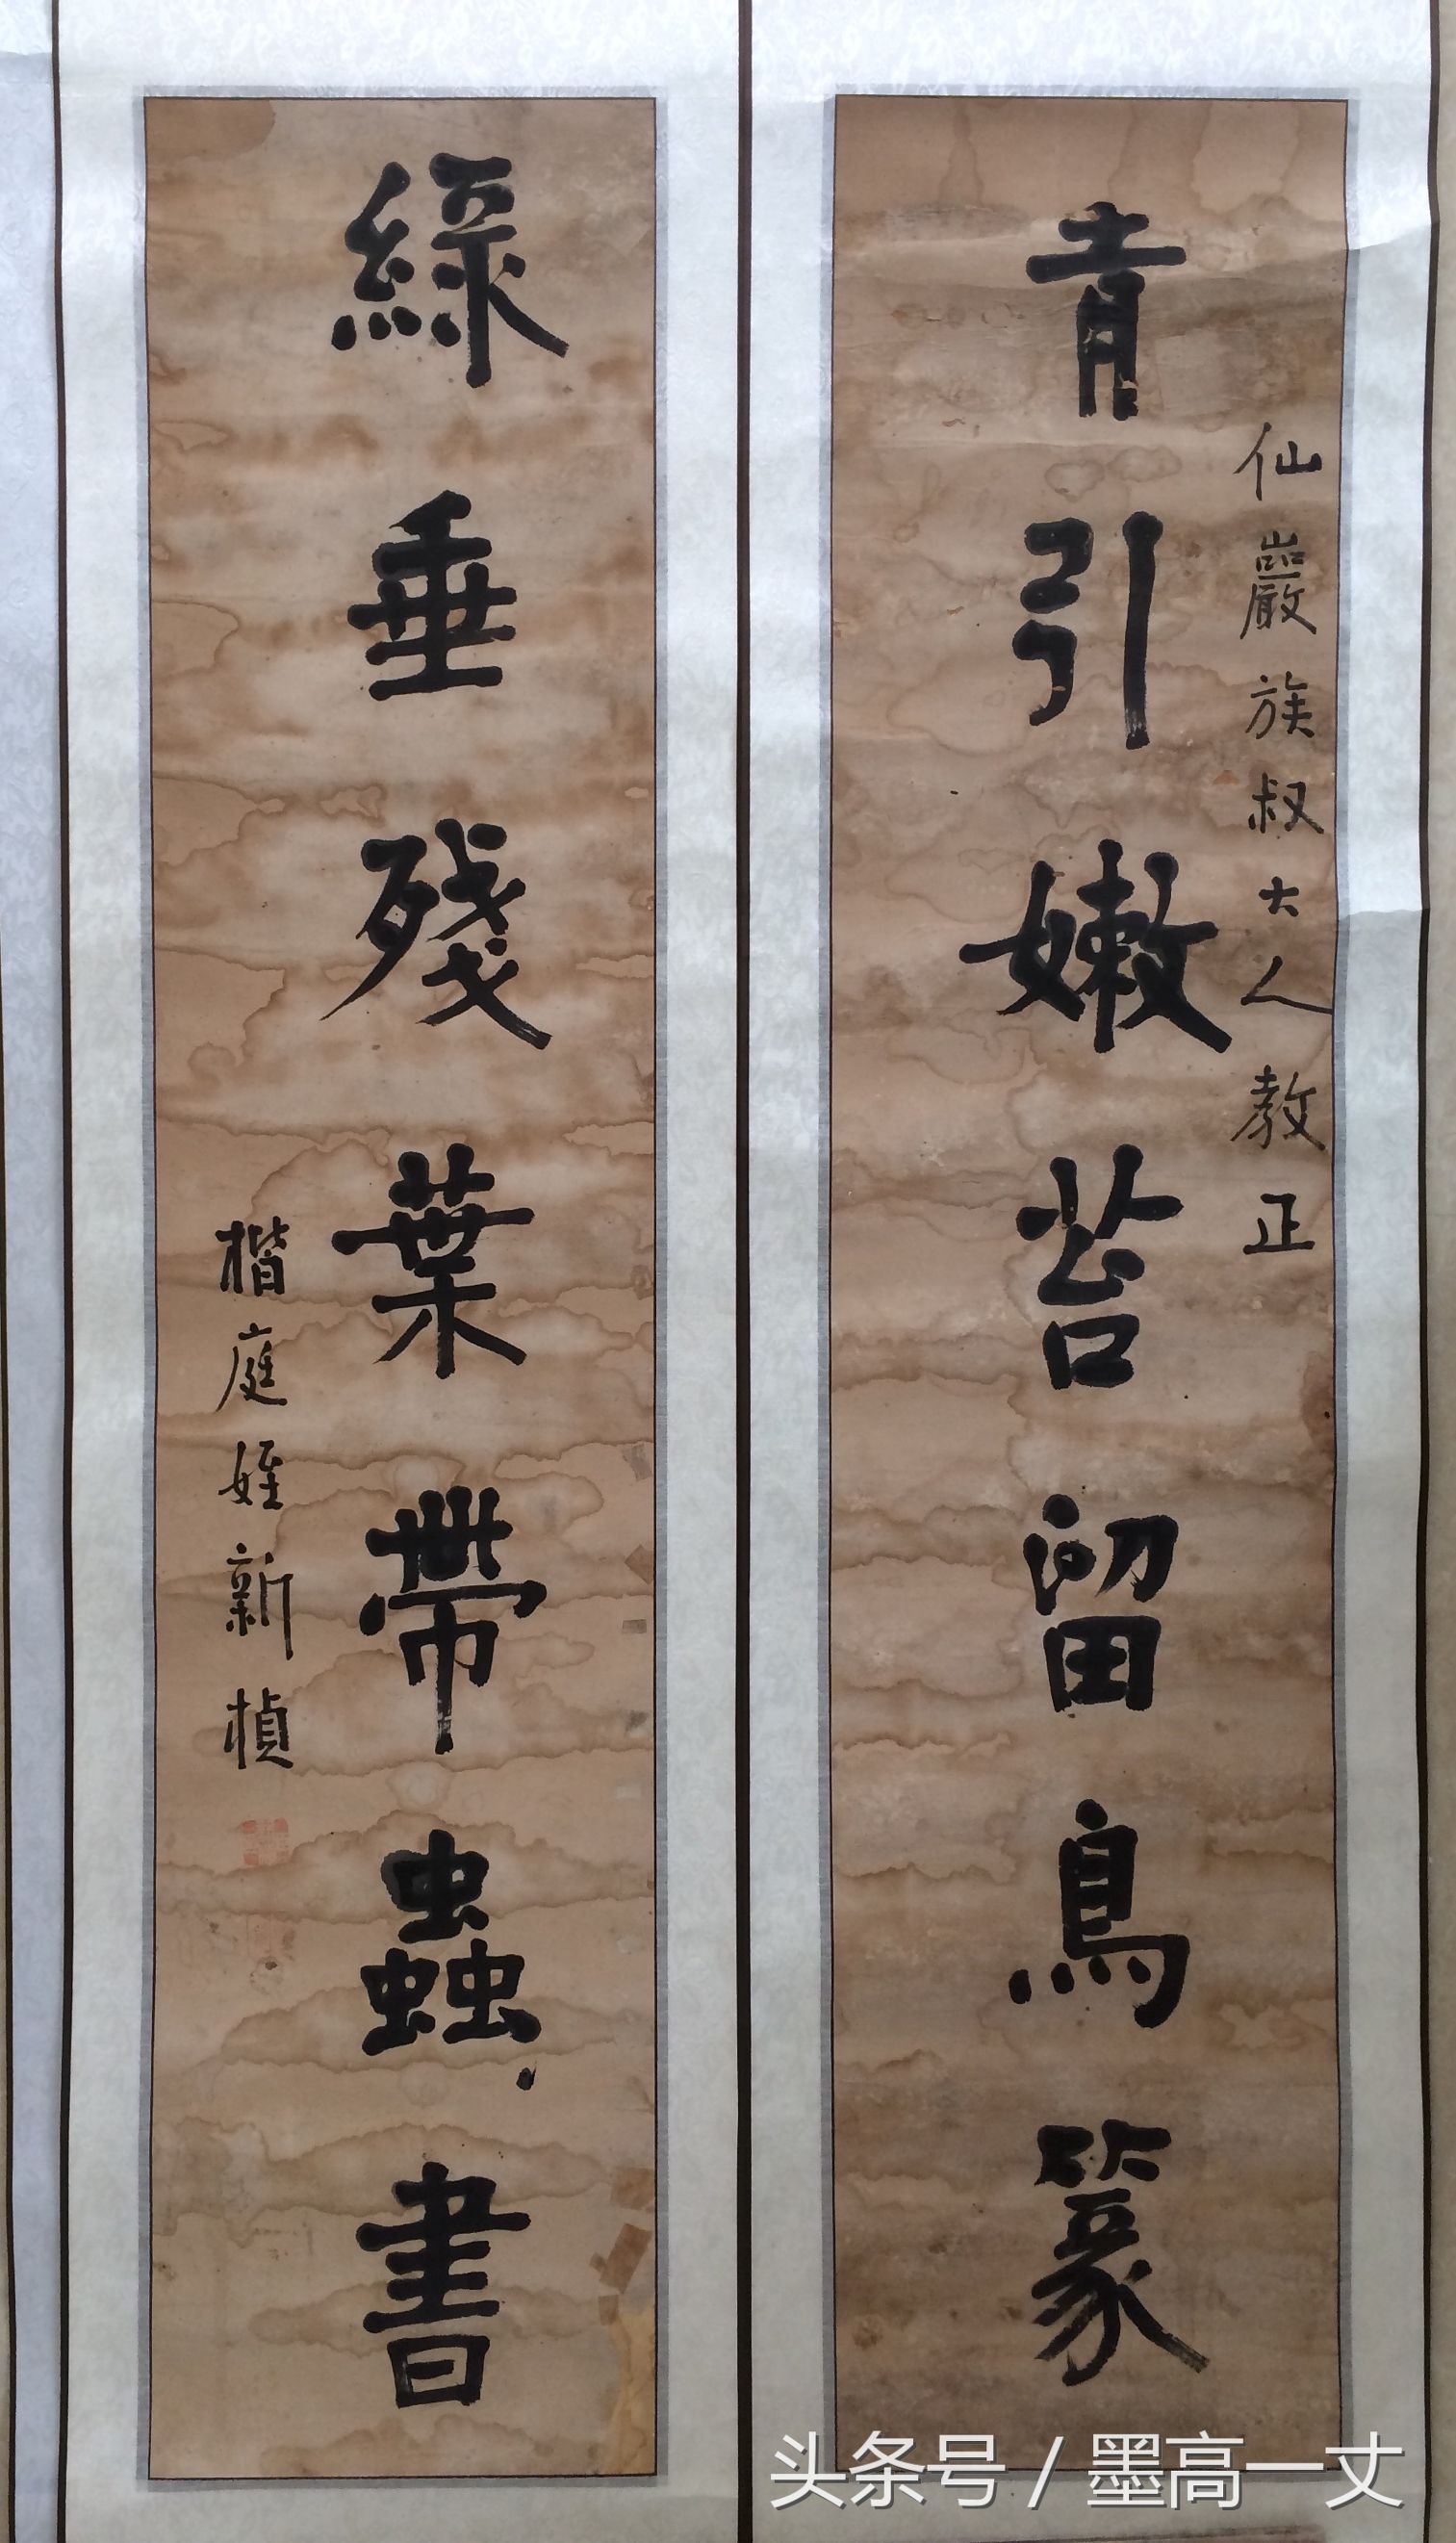 仙巖族叔大人教正
青引嫩苔留鳥篆
綠垂殘葉帶蟲書
楷庭姪新楨
头条号 / 墨高一丈